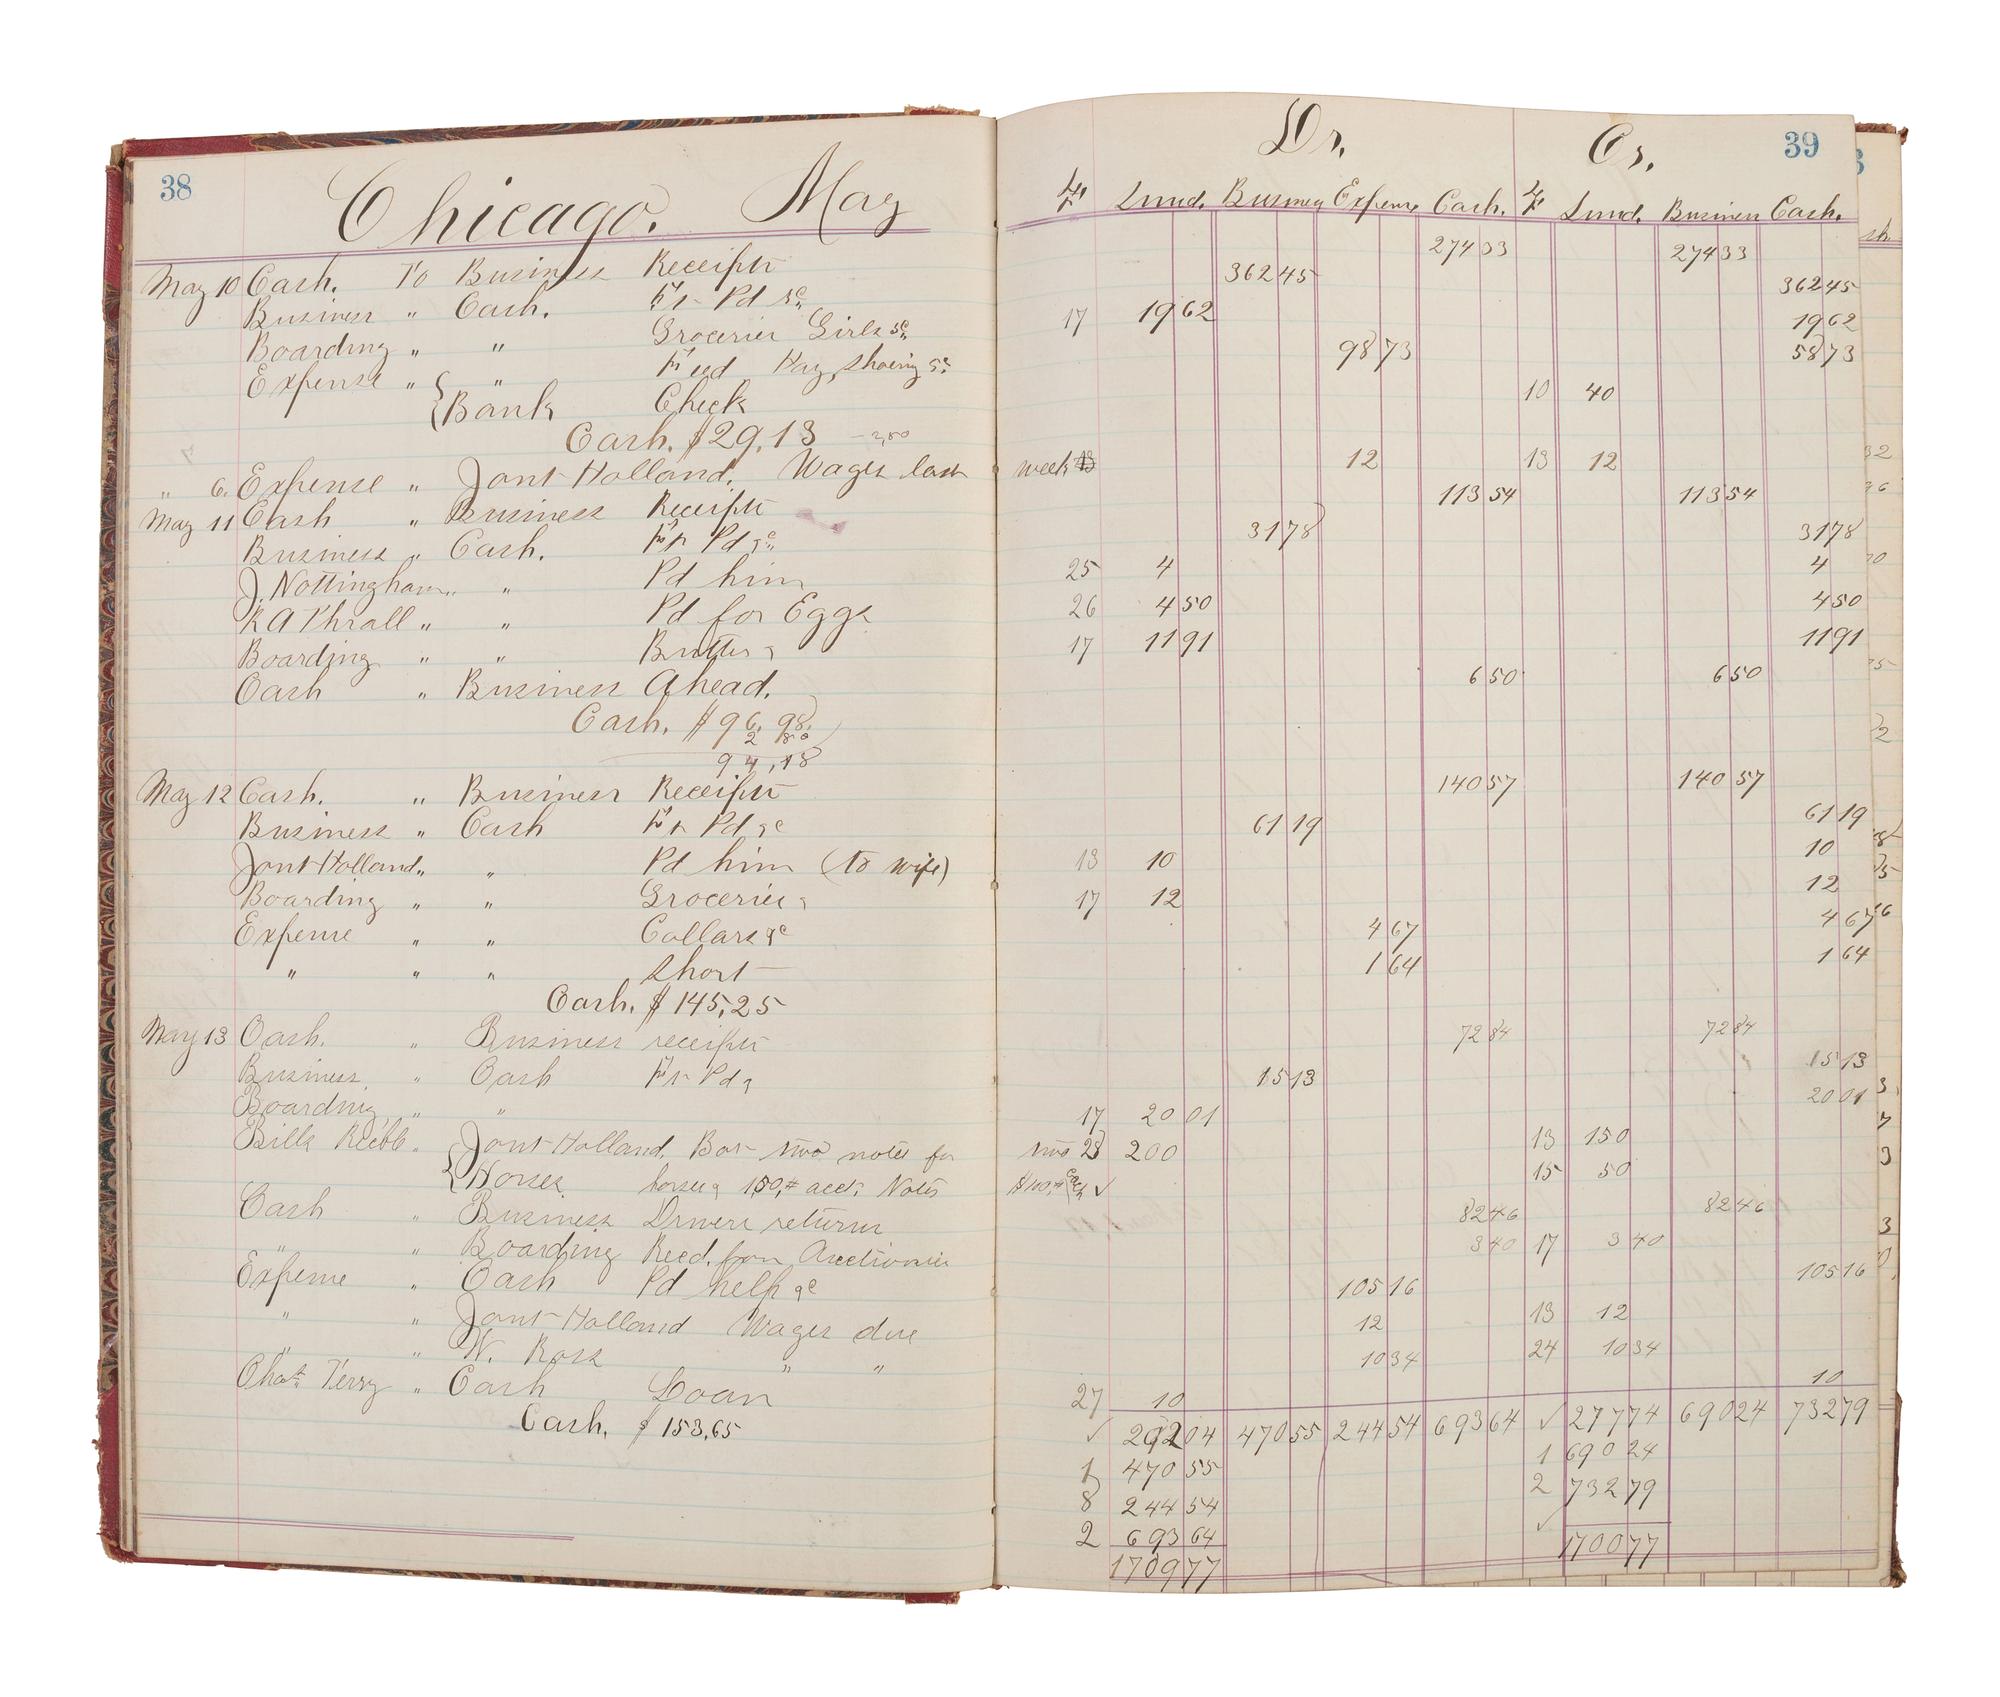 38
Chicago. May
May 10 Cash. To Business Receipts
Business " Cash. Frt Pd &c
Boarding " " Groceries Girls &c
Expense " " Feed Hay, Shoeing &c
Bank Check
Cash. $29,13 - 2,80
" 6. Expense " Jont Holland. Wages last
May 11 Cash " Business Receipts
Business " Cash. Frt Pd &c
J. Nottingham " " Pd him
R A Thrall " " Pd for Eggs
Boarding " " Butter &
Cash " Business Ahead.
Cash. $96,98
2 80
94,18
May 12 Cash. " Business Receipts
Business " Cash Frt Pd &c
Jont Holland " " Pd him (to wife)
Boarding " " Groceries &
Expense " " Collars &c
" " " Short
Cash. $145,25
May 13 Cash. " Business receipts
Business. " Cash Frt Pd &
Boarding " "
Bills " Jont Holland. Bot two notes for
Horses. horses 150,# acct. Notes
Cash " Business Drivers returns
" " Boarding Recd. from
Expense " Cash Pd help &c
" " Jont Holland Wages due
" " W. Ross " "
Chas. Terry " Cash Loan
Cash. $153,65
39
Dr. Cr.
Business Expense Cash. Business Cash.
274 33 274 33
362 45 362 45
17 19 62 19 62
98 73 58 73
10 40
week 12 13 12
113 54 113 54
31 78 31 78
25 4 4
26 4 50 4 50
17 11 91 11 91
6 50 6 50
140 57 140 57
61 19 61 19
13 10 10
17 12 12
4 67 4 67
1 64 1 64
72 84 72 84
15 13 15 13
17 20 01 20 01
two 28 200 13 150
$100,# each ✓ 15 50
82 46 82 46
3 40 17 3 40
105 16 105 16
12 13 12
10 34 24 10 34
27 10 10
✓ 292 04 470 55 244 54 693 64 ✓ 277 74 690 24 732 79
1 470 55 1 690 24
8 244 54 2 732 79
2 693 64 ✓
1709 77 1700 77